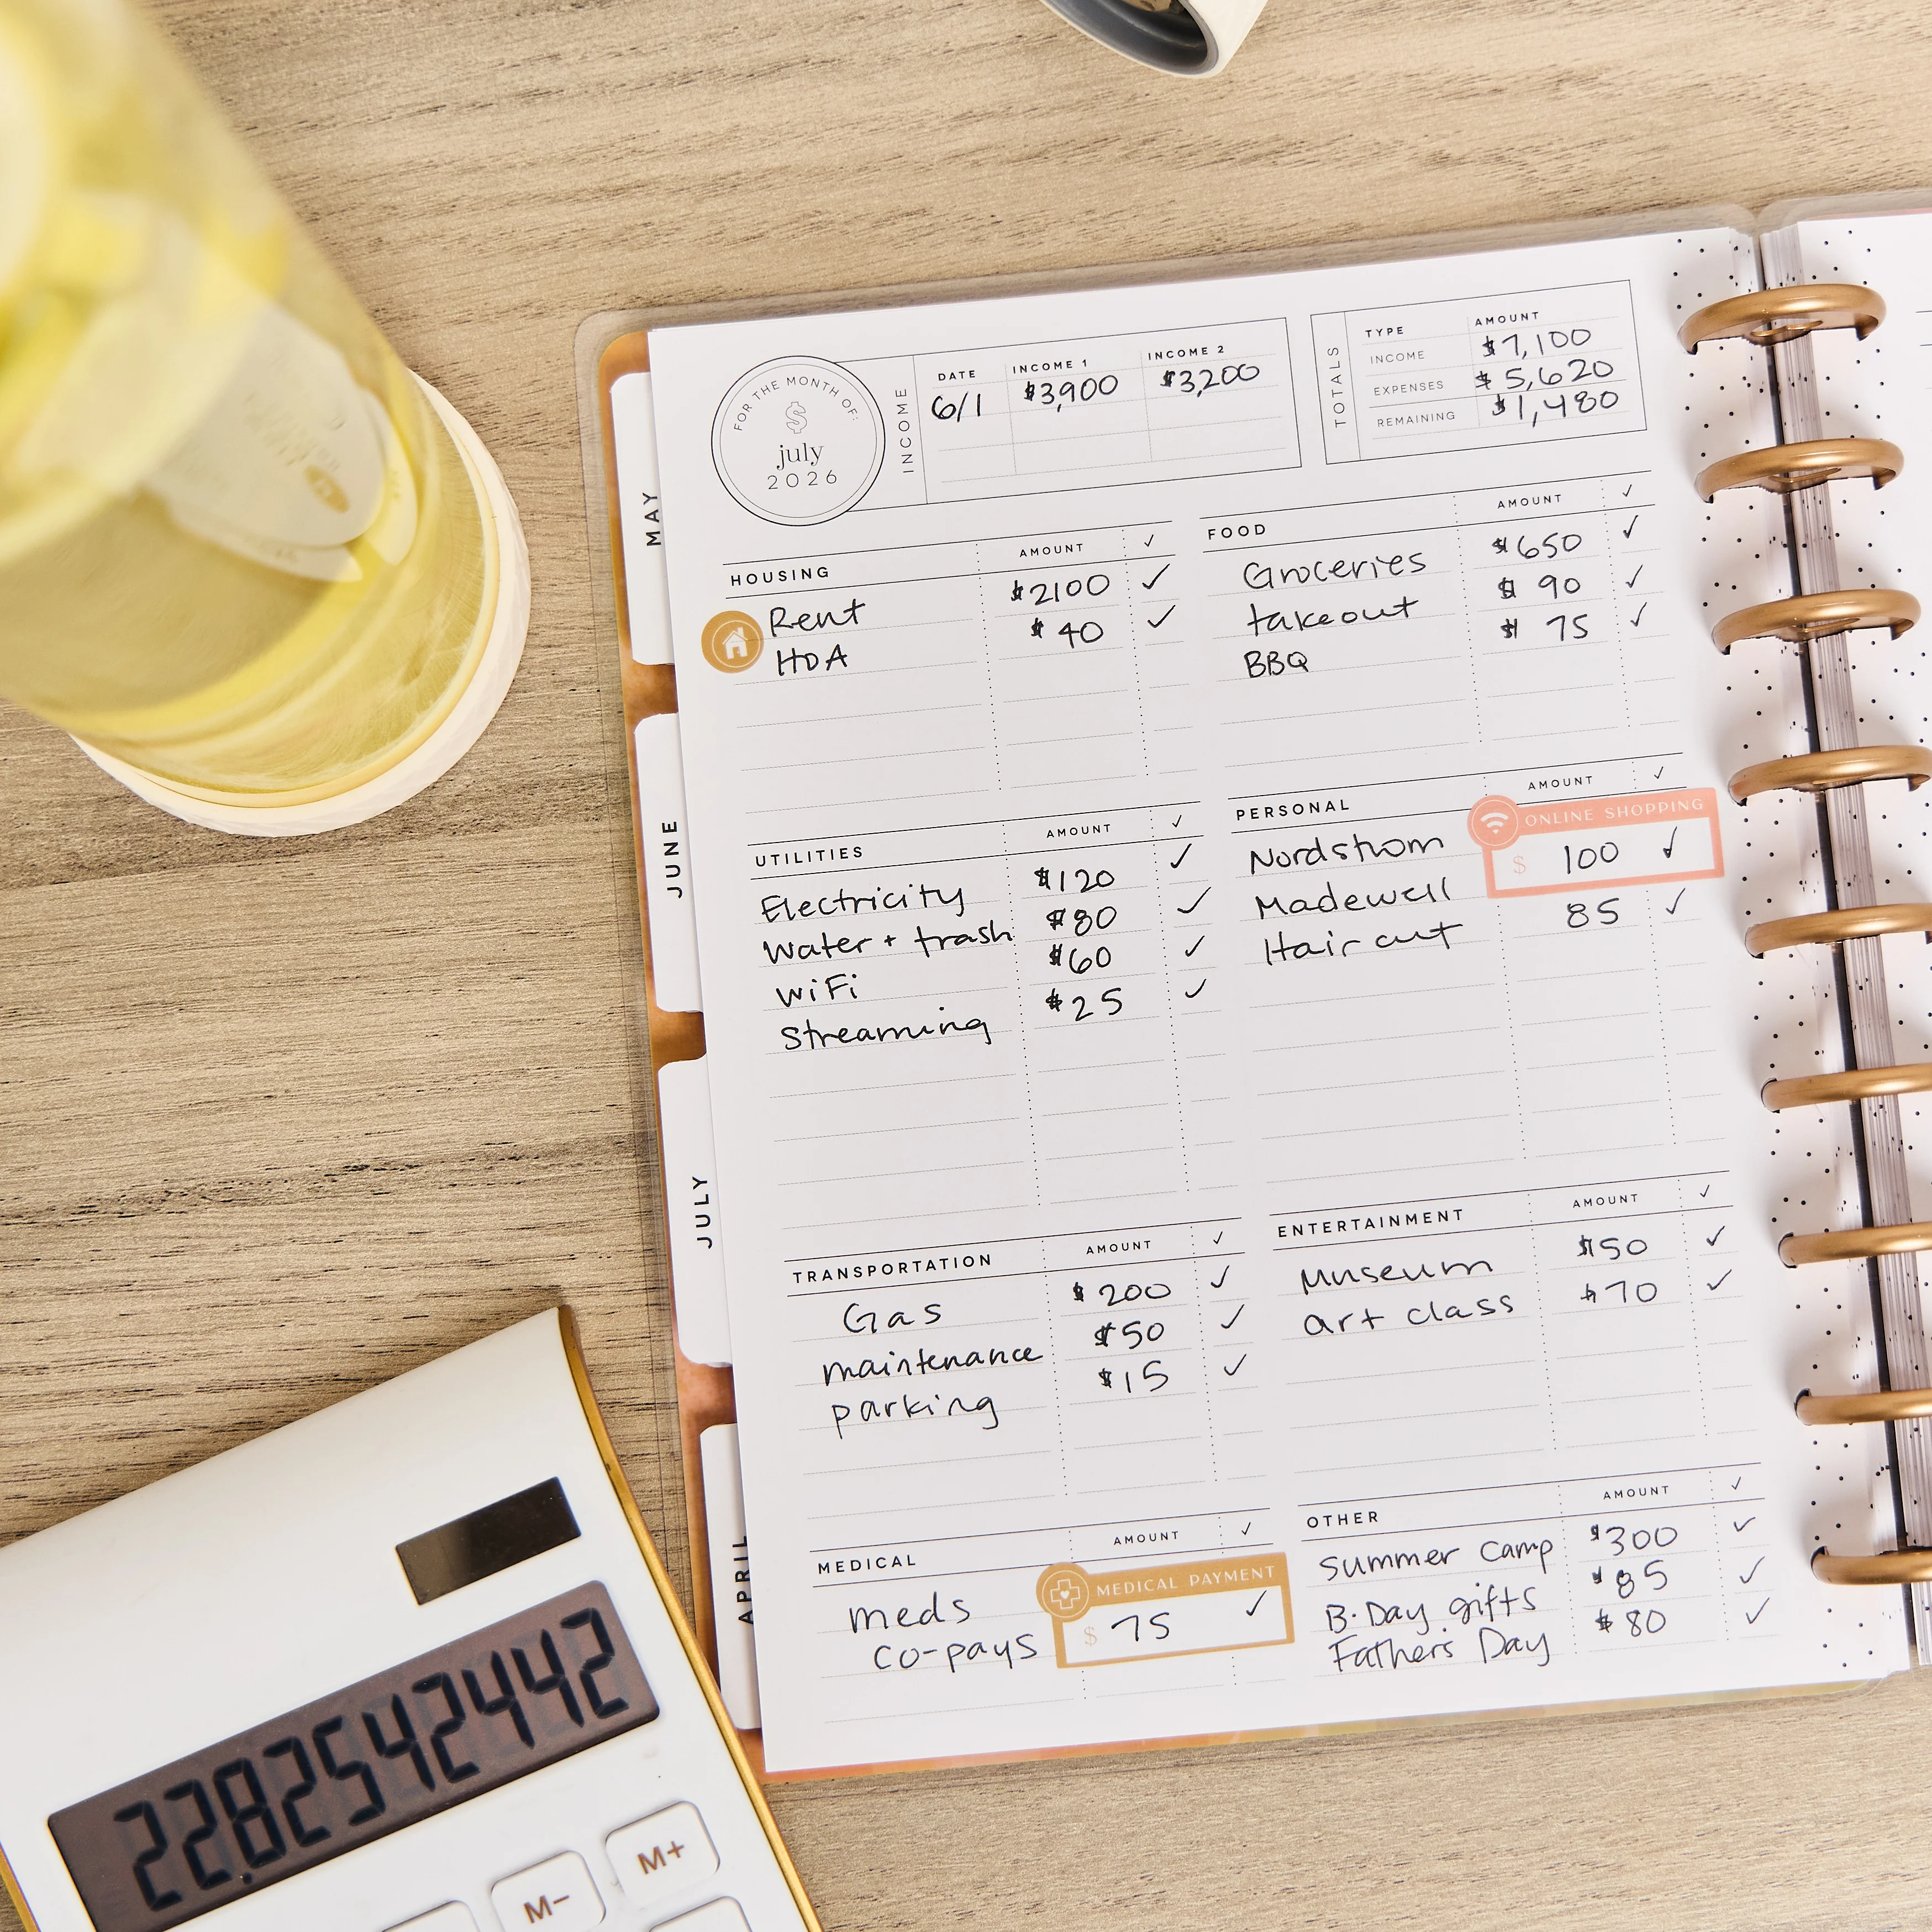 FOR THE MONTH OF:
$
july
2026
INCOME
DATE INCOME 1 INCOME 2
6/1 $3,900 $3,200
TOTALS
TYPE AMOUNT
INCOME $7,100
EXPENSES $5,620
REMAINING $1,480
HOUSING AMOUNT ✓
Rent $2100 ✓
HOA $40 ✓
FOOD AMOUNT ✓
Groceries $650 ✓
takeout $90 ✓
BBQ $75 ✓
UTILITIES AMOUNT ✓
Electricity $120 ✓
Water + trash $80 ✓
WiFi $60 ✓
Streaming $25 ✓
PERSONAL AMOUNT ✓
ONLINE SHOPPING
Nordstrom $ 100 ✓
Madewell
Hair cut 85 ✓
TRANSPORTATION AMOUNT ✓
Gas $200 ✓
maintenance $50 ✓
parking $15 ✓
ENTERTAINMENT AMOUNT ✓
Museum $50 ✓
art class $70 ✓
MEDICAL AMOUNT ✓
MEDICAL PAYMENT
meds $ 75 ✓
co-pays
OTHER AMOUNT ✓
Summer camp $300 ✓
B-Day gifts $85 ✓
Fathers Day $80 ✓
MAY
JUNE
JULY
APRIL
22.82542442
M-
M+